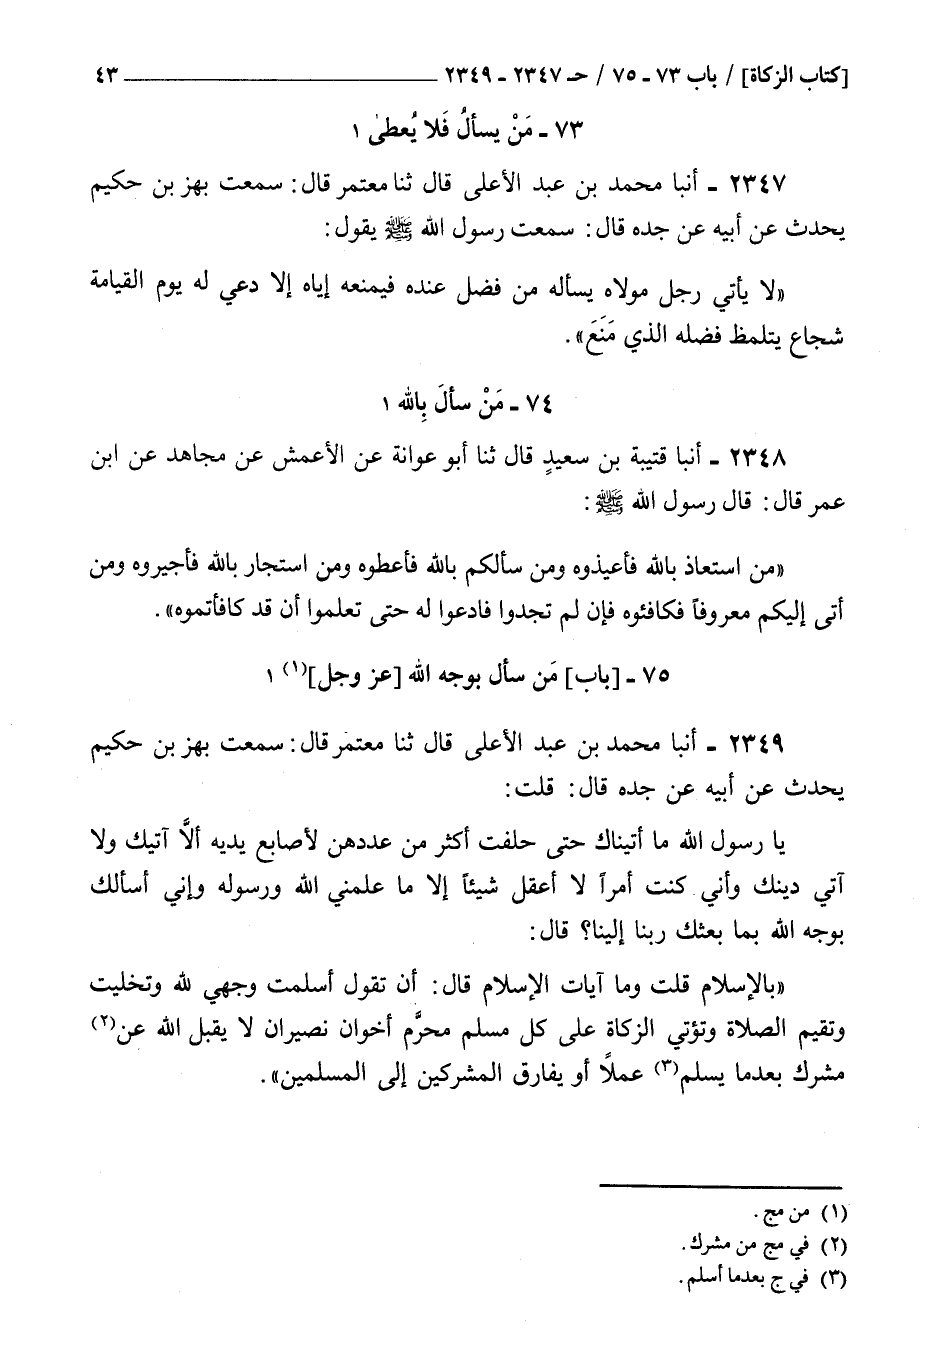 [كتاب الزكاة] / باب ٧٣ ـ ٧٥ / حـ ٢٣٤٧ ـ ٢٣٤٩ ٤٣
٧٣ ـ مَنْ يسألُ فَلا يُعطىٰ ١
٢٣٤٧ ـ أنبا محمد بن عبد الأعلى قال ثنا معتمر قال: سمعت بهز بن حكيم
يحدث عن أبيه عن جده قال: سمعت رسول الله ﷺ يقول:
«لا يأتي رجل مولاه يسأله من فضل عنده فيمنعه إياه إلا دعي له يوم القيامة
شجاع يتلمظ فضله الذي مَنَعَ».
٧٤ ـ مَنْ سألَ بِالله ١
٢٣٤٨ ـ أنبا قتيبة بن سعيدٍ قال ثنا أبو عوانة عن الأعمش عن مجاهد عن ابن
عمر قال: قال رسول الله ﷺ:
«من استعاذ بالله فأعيذوه ومن سألكم بالله فأعطوه ومن استجار بالله فأجيروه ومن
أتى إليكم معروفاً فكافئوه فإن لم تجدوا فادعوا له حتى تعلموا أن قد كافأتموه».
٧٥ ـ [باب] مَن سأل بوجه الله [عز وجل](١) ١
٢٣٤٩ ـ أنبا محمد بن عبد الأعلى قال ثنا معتمر قال: سمعت بهز بن حكيم
يحدث عن أبيه عن جده قال: قلت:
يا رسول الله ما أتيناك حتى حلفت أكثر من عددهن لأصابع يديه ألاَّ آتيك ولا
آتي دينك وأني كنت أمراً لا أعقل شيئاً إلا ما علمني الله ورسوله وإني أسألك
بوجه الله بما بعثك ربنا إلينا؟ قال:
«بالإسلام قلت وما آيات الإسلام قال: أن تقول أسلمت وجهي لله وتخليت
وتقيم الصلاة وتؤتي الزكاة على كل مسلم محرَّم أخوان نصيران لا يقبل الله عن(٢)
مشرك بعدما يسلم(٣) عملاً أو يفارق المشركين إلى المسلمين».
(١) من مج.
(٢) في مج من مشرك.
(٣) في ج بعدما أسلم.